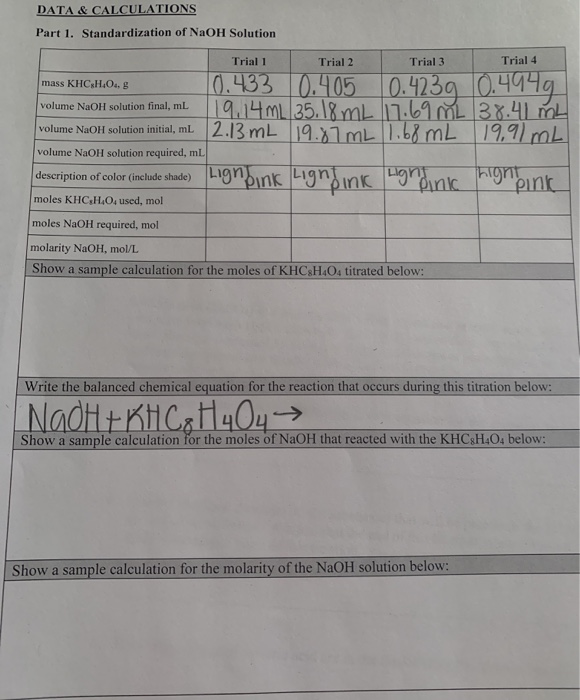 DATA & CALCULATIONS
Part 1. Standardization of NaOH Solution
Trial 1 Trial 2 Trial 3 Trial 4
mass KHC₈H₄O₄, g 0.433 0.405 0.423g 0.494g
volume NaOH solution final, mL 19.14mL 35.18mL 17.69mL 38.41 mL
volume NaOH solution initial, mL 2.13mL 19.87mL 1.68mL 19.91mL
volume NaOH solution required, mL
description of color (include shade) Light pink Light pink Light pink Light pink
moles KHC₈H₄O₄ used, mol
moles NaOH required, mol
molarity NaOH, mol/L
Show a sample calculation for the moles of KHC₈H₄O₄ titrated below:
Write the balanced chemical equation for the reaction that occurs during this titration below:
NaOH + KHC₈H₄O₄ →
Show a sample calculation for the moles of NaOH that reacted with the KHC₈H₄O₄ below:
Show a sample calculation for the molarity of the NaOH solution below: